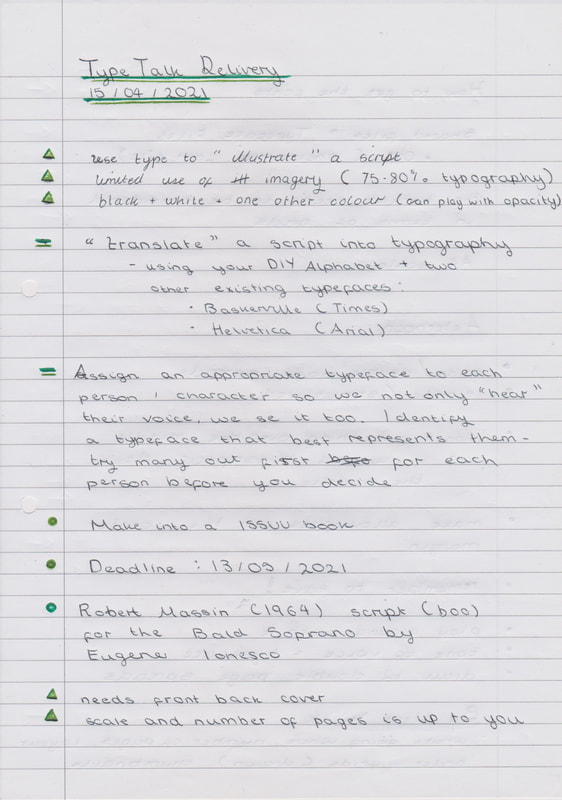 Type Talk Delivery
15/04/2021
use type to "illustrate" a script
limited use of imagery (75-80% typography)
black + white + one other colour (can play with opacity)
"translate" a script into typography
- using your DIY Alphabet + two
other existing typefaces:
· Baskerville (Times)
· Helvetica (Arial)
Assign an appropriate typeface to each
person / character so we not only "hear"
their voice, we se it too. Identify
a typeface that best represents them -
try many out first for each
person before you decide
Make into a ISSUU book
Deadline : 13/05/2021
Robert Massin (1964) script (boo)
for the Bald Soprano by
Eugene Ionesco
needs front back cover
scale and number of pages is up to you